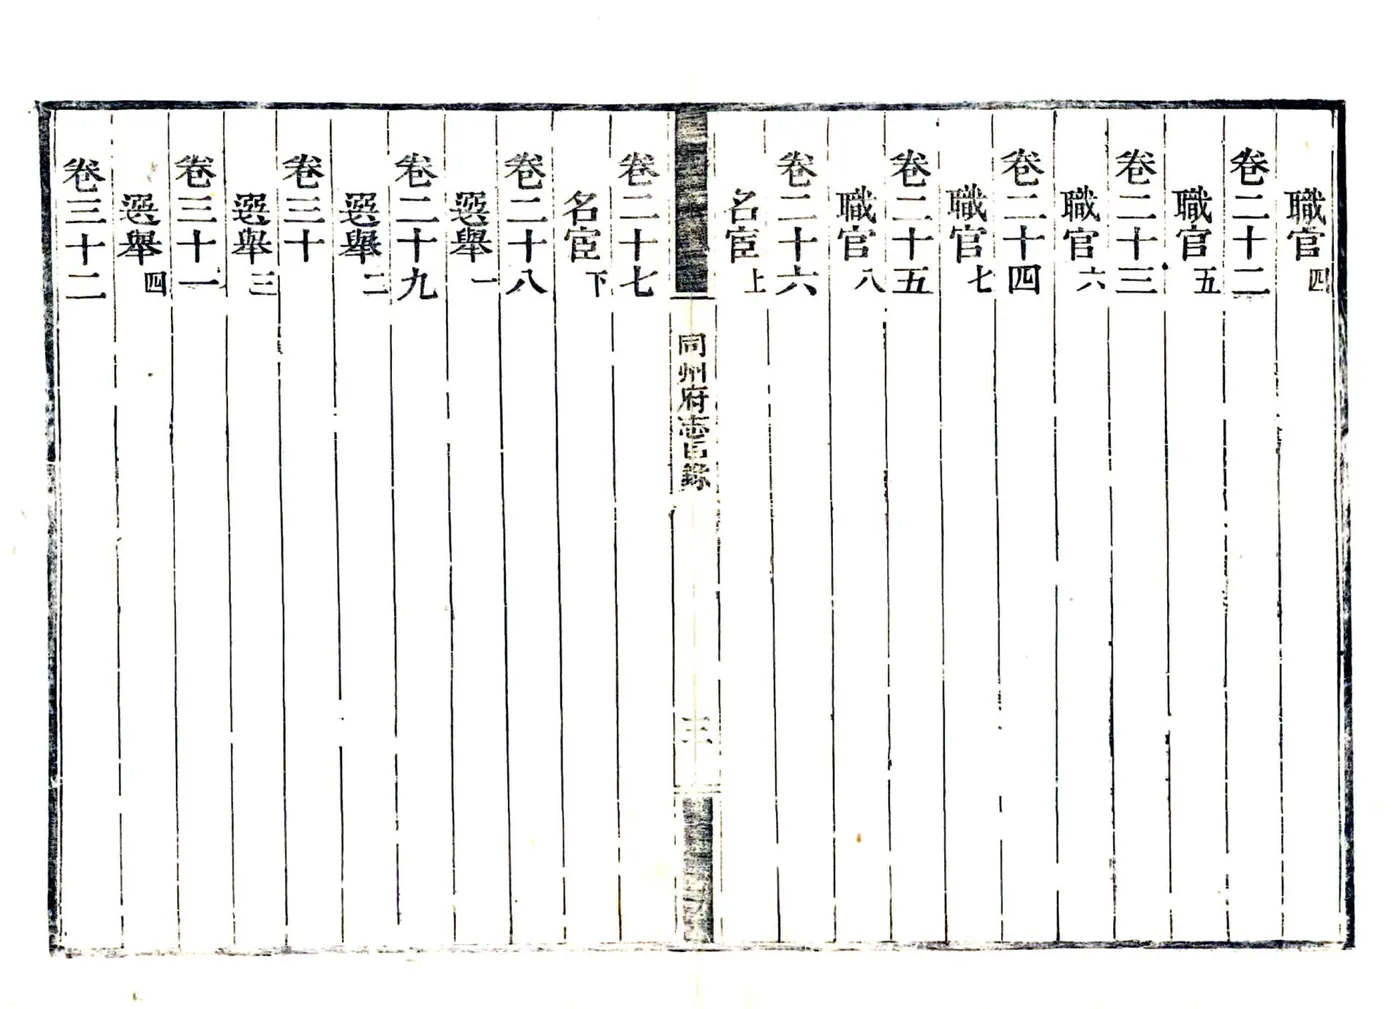 職官四
卷二十二
職官五
卷二十三
職官六
卷二十四
職官七
卷二十五
職官八
卷二十六
名宦上
同州府志目錄
三
卷二十七
名宦下
卷二十八
選舉一
卷二十九
選舉二
卷三十
選舉三
卷三十一
選舉四
卷三十二